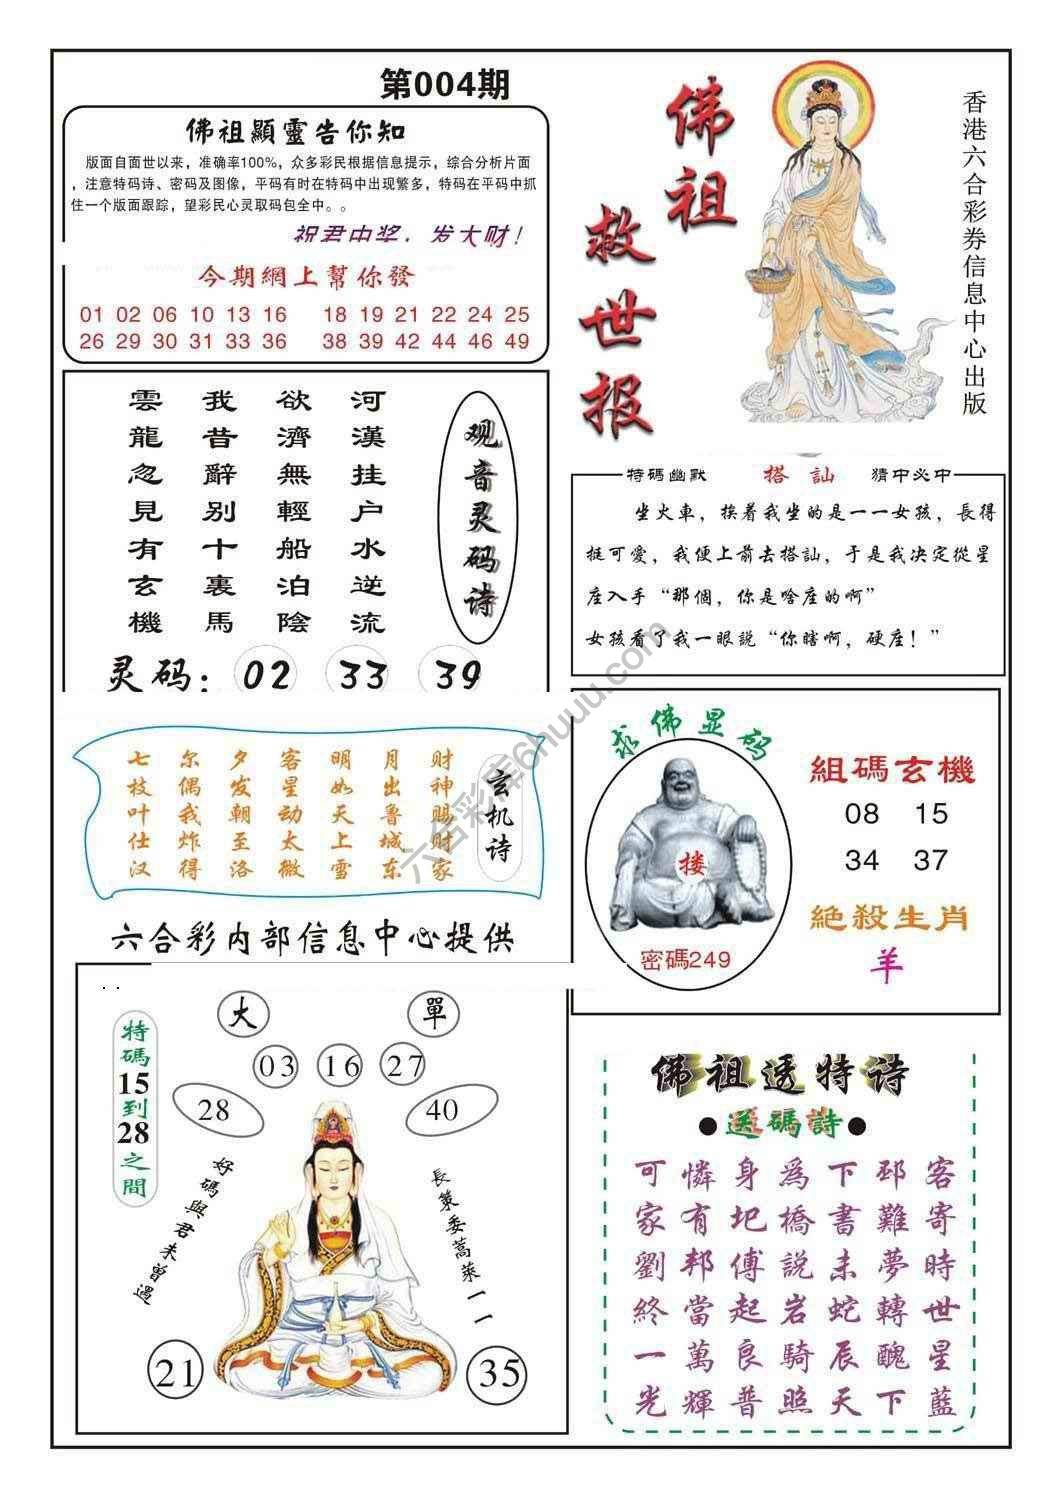 第004期
佛祖顯靈告你知
版面自面世以来，准确率100%，众多彩民根据信息提示，综合分析片面
，注意特码诗、密码及图像，平码有时在特码中出现繁多，特码在平码中抓
住一个版面跟踪，望彩民心灵取码包全中。。
祝君中奖，发大财！
今期網上幫你發
01 02 06 10 13 16 18 19 21 22 24 25
26 29 30 31 33 36 38 39 42 44 46 49
佛祖
救世报
香港六合彩券信息中心出版
观音灵码诗
河漢挂户水逆流
欲濟無輕船泊陰
我昔辭別十裏馬
雲龍忽見有玄機
灵码：02 33 39
特碼幽默 搭訕 猜中必中
坐火車，挨着我坐的是一一女孩，長得
挺可愛，我便上前去搭訕，于是我决定從星
座入手“那個，你是啥座的啊”
女孩看了我一眼説“你瞎啊，硬座！”
玄机诗
财神赐财家
月出鲁城东
明如天上雪
客星动太微
夕发朝至洛
尔偶我炸得
七枝叶仕汉
求佛显码
搂
密碼249
組碼玄機
08 15
34 37
絶殺生肖
羊
六合彩内部信息中心提供
特碼15到28之間
大 單
03 16 27
28 40
好碼與君未曾遇
長策委蒿萊一一
21 35
佛祖透特诗
●送碼詩●
可憐身為下邳客
家有圯橋書難寄
劉邦傅説未夢時
終當起岩蛇轉世
一萬良騎辰醜星
光輝普照天下藍
六合彩库6huuu.com